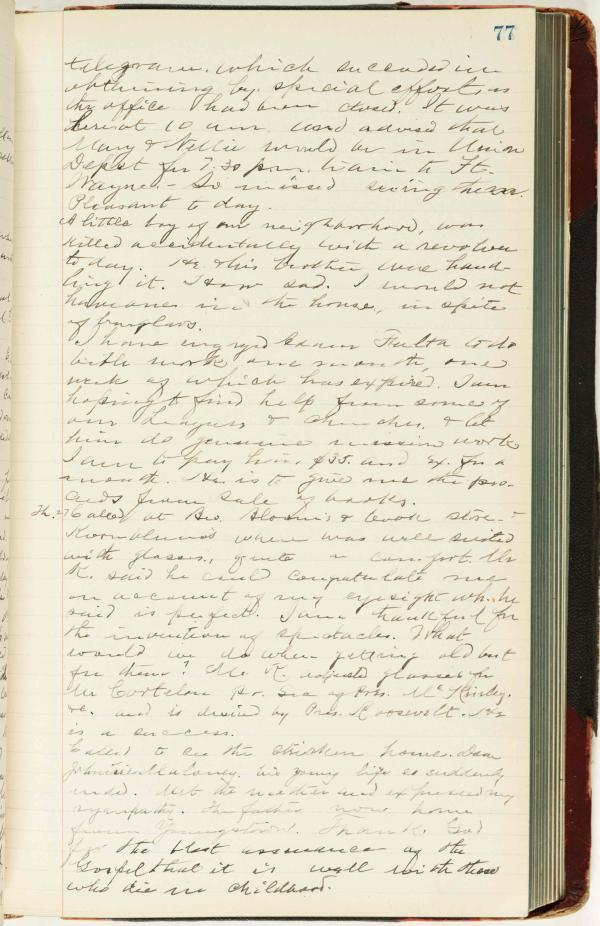 77
telegram. which succeeded in
obtaining by special effort as
the office had been closed. It was
here at 10 a.m. and advised that
Mary & Nellie would be in Union
Depot for 7.30 p.m. train to Ft.
Wayne. - So missed seeing them.
Pleasant to day.
A little boy of our neighborhood, was
killed accidentally with a revolver
to day. He & his brother were hand-
ling it. How sad. I would not
have one in the house, in spite
of burglars.
I have engaged Fulta to do
bible work one month, one
week of which has expired. I am
hoping to find help from some of
our Leagues & Churches, & let
him do genuine mission work
I am to pay him $35. and Ex. for a
month. He is to give me the pro-
ceeds from sale of books.
Th. 27 Called at Bro. & book store -
where was well suited
with glasses, quite a comfort. Mr
K. said he could congratulate me
on account of my eyesight wh. he
said is perfect. I am thankful for
the invention of spectacles. What
would we do when getting old but
for them? Mr. K. adjusted glasses for
Mr Cortelou Pr. Sec of Pres. McKinley.
&c. and is desired by Pres. Roosevelt. He
is a success.
Called to see the stricken home. Dear
Maloney. his young life so suddenly
ended. Met the mother and expressed my
sympathy. The father now home
from Youngstown. Thank God
for the blest assurance of the
Gospel that it is well with those
who die in childhood.